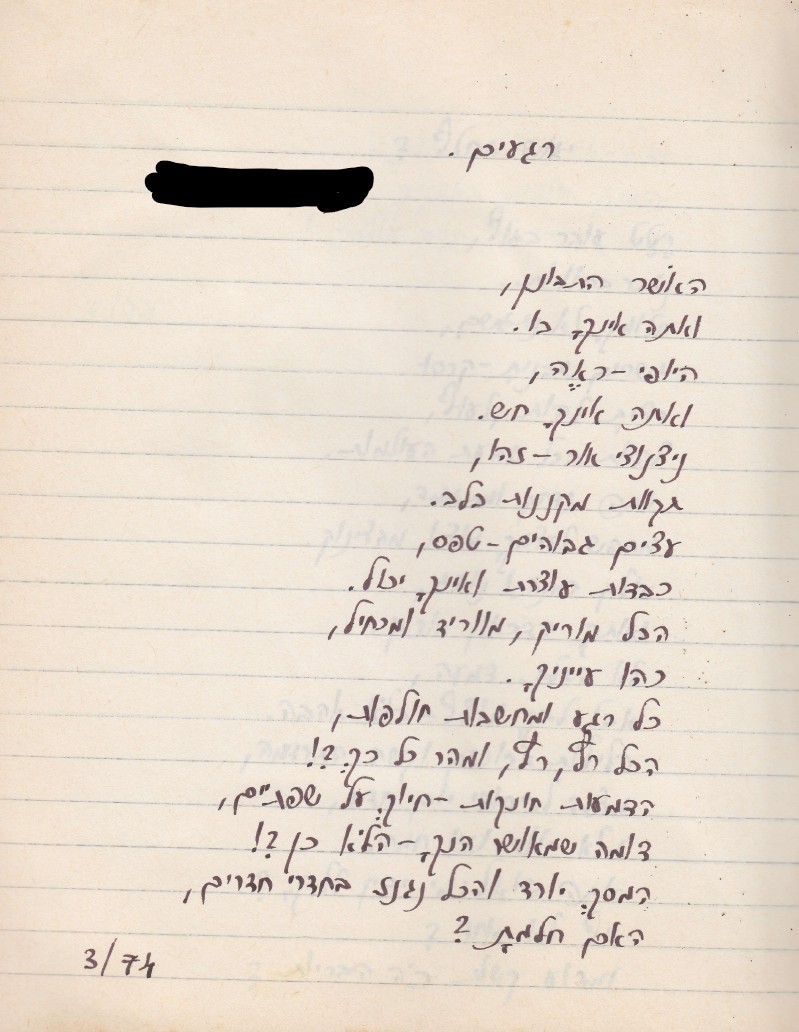 רגעים.
האֹשר התבונן,
ואתה אינךָ בו.
היופי – רְאֵה,
ואתה אינךָ חש.
ניצנוצי אור – זהו,
תקוות מקננות בלב.
עצים גבוהים – טפס,
כבדות עוצרת ואינךָ יכול.
הכל מוריק, מווריד ומכחיל,
כהו עייניךָ.
כל רגע ומחשבות חולפות,
הכל רץ, רץ, ומהר כל כךְ?!
הדמעות חונקות – חיוך על שפתיים,
דומה שמאושר הנךָ – הֲלֹא כן?!
המסך יורד והכל נגנז בחדרי חדרים,
האם חלמתָ?
3/74